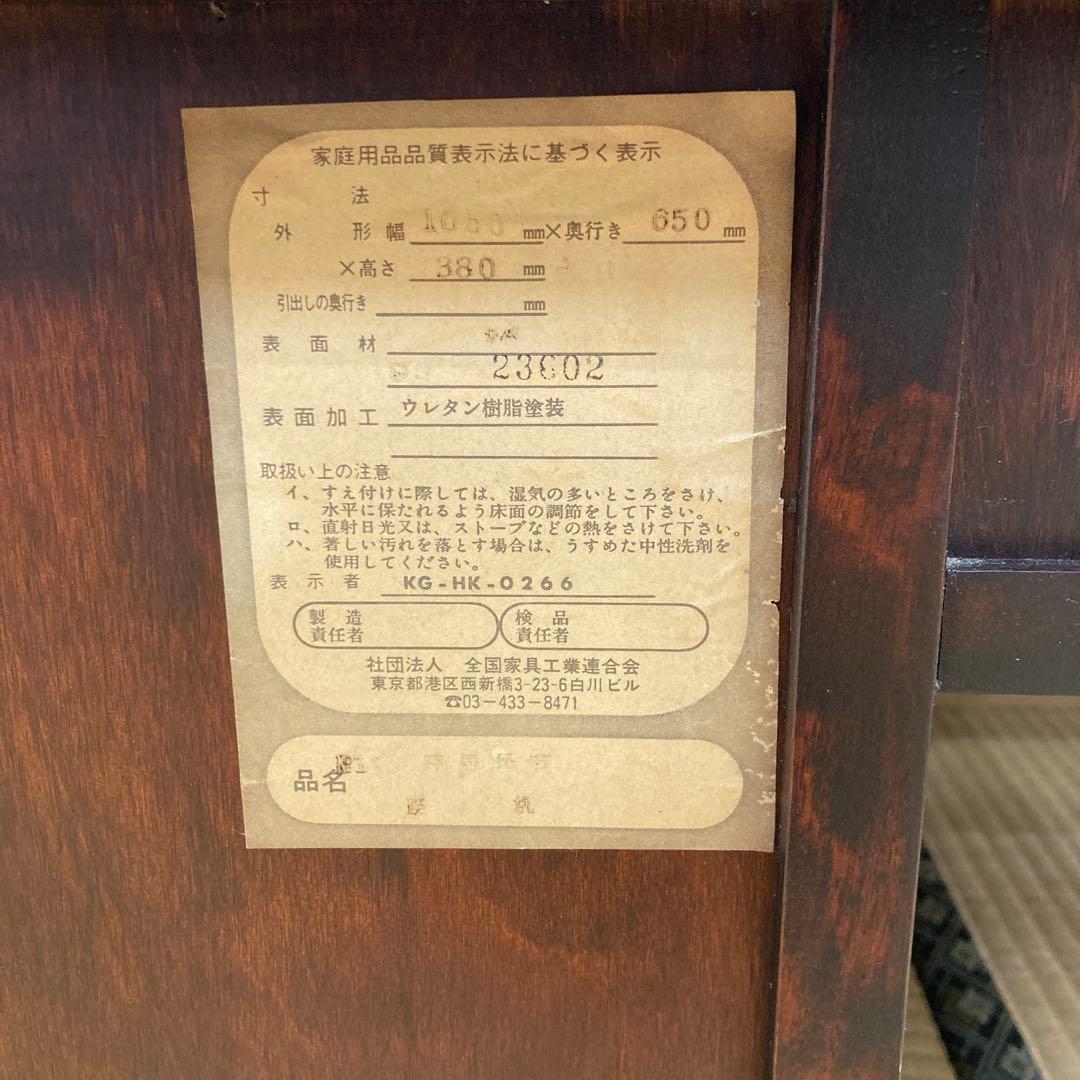 家庭用品品質表示法に基づく表示
寸法
外形 幅 1050 mm×奥行き 650 mm
×高さ 380 mm
引出しの奥行き mm
表面材
23602
表面加工 ウレタン樹脂塗装
取扱い上の注意
イ、すえ付けに際しては、湿気の多いところをさけ、
水平に保たれるよう床面の調節をして下さい。
ロ、直射日光又は、ストーブなどの熱をさけて下さい。
ハ、著しい汚れを落とす場合は、うすめた中性洗剤を
使用してください。
表示者 KG-HK-0266
製造 検品
責任者 責任者
社団法人 全国家具工業連合会
東京都港区西新橋3-23-6白川ビル
☎03-433-8471
品名
机